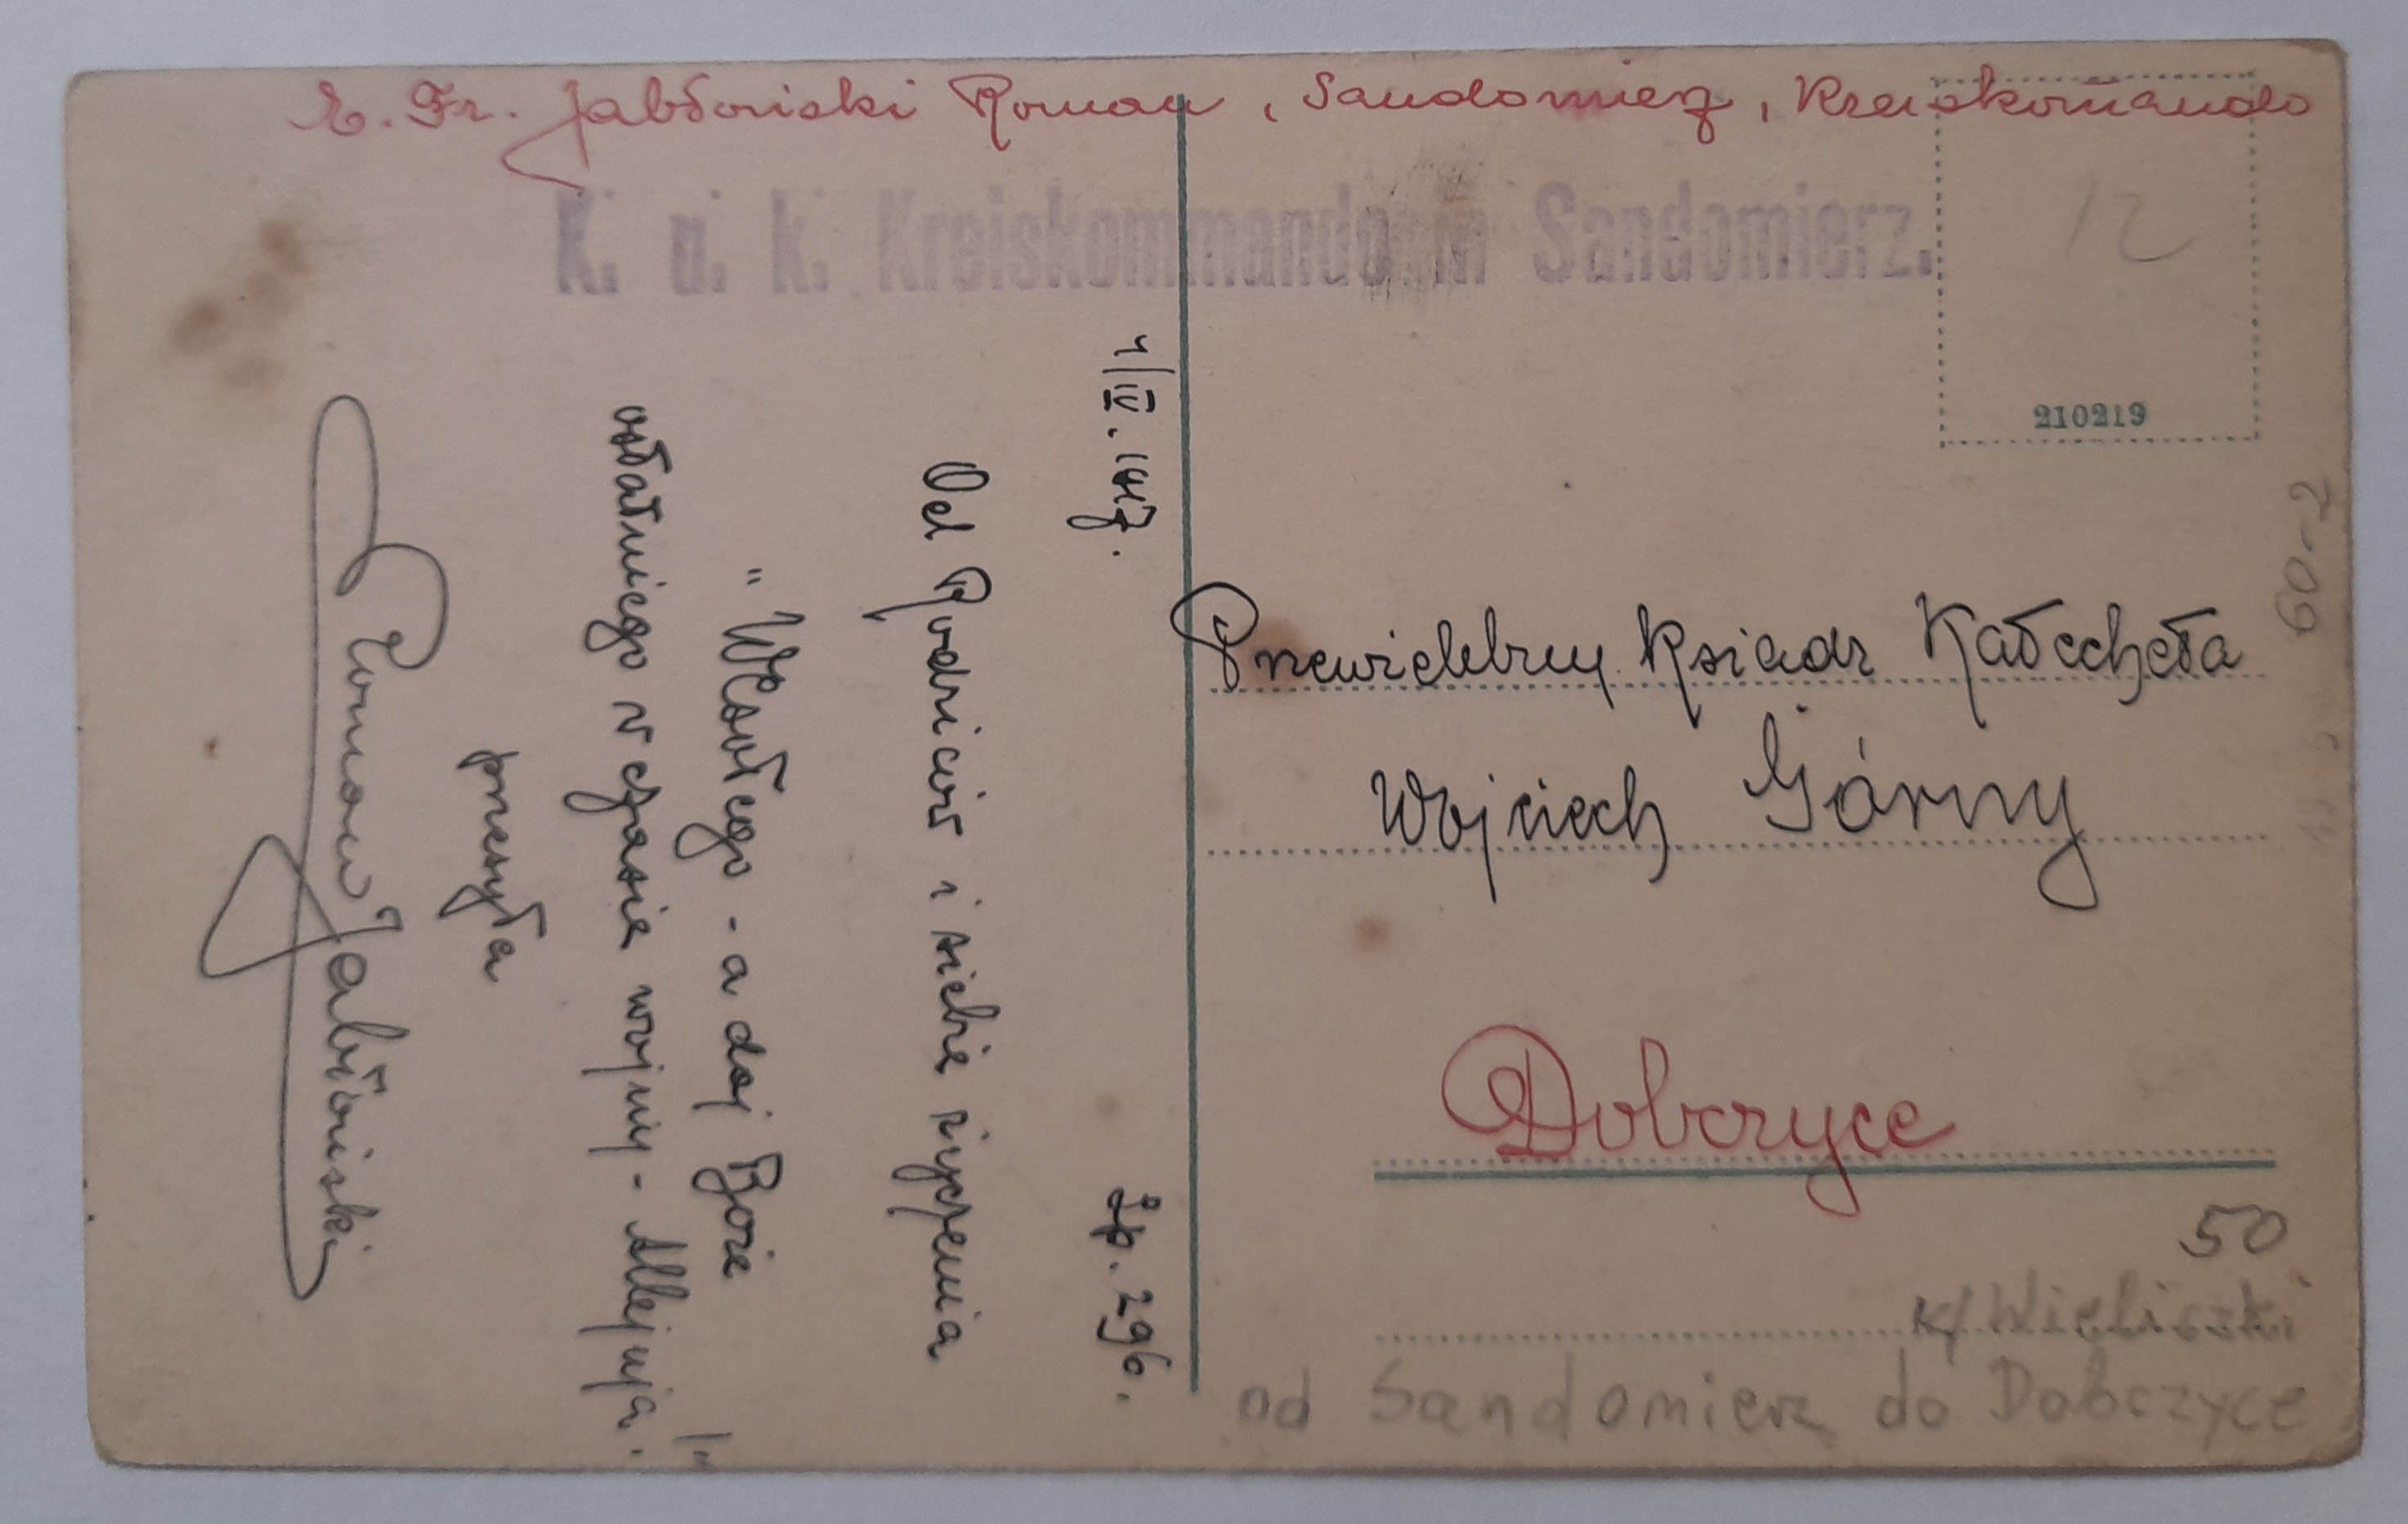 E. Fr. Jabłoński Roman, Sandomierz, Kreiskom̄ando
K. u. k. Kreiskommando in Sandomierz.
12
210219
4/IV. 1917.
Lp. 296.
Od Rodziców i siebie życzenia
"Wesołego - a daj Boże
ostatniego w czasie wojny - Alleluja!"
przesyła
Roman Jabłoński
Przewielebny Ksiądz Katecheta
Wojciech Górny
Dobczyce
50
k/Wieliczki
od Sandomierz do Dobczyce
60-2